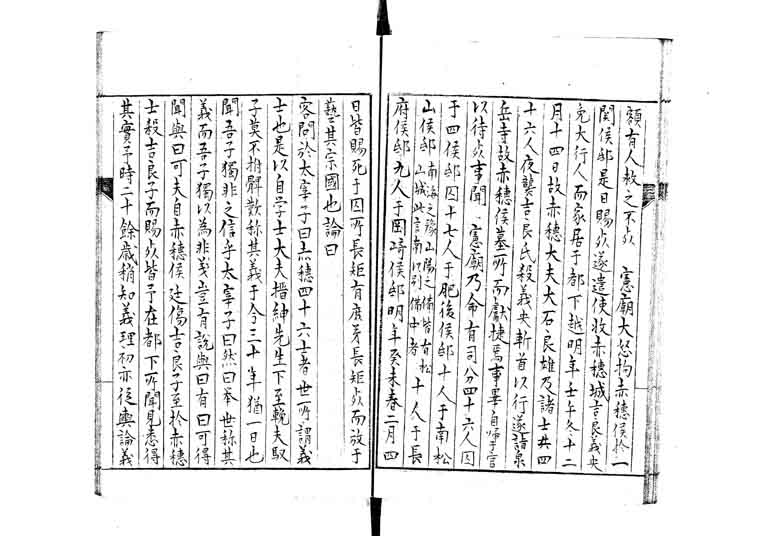 額有人赦之不死　憲廟大怒拘赤穗侯於一
関侯邸是日賜死遂遣使收赤穗城吉良義央
免大行人而家居于都下越明年壬午冬十二
月十四日故赤穗大夫大石良雄及諸士共四
十六人夜襲吉良氏殺義央斬首以行遂詣泉
岳寺故赤穗侯墓所而獻捷焉事畢自帰于官
以待死事聞　憲廟乃命有司分四十六人囚
于四侯邸囚十七人于肥後侯邸十人于南松
山侯邸南海之豫山陽之備皆有松山城此言南以別備中者十人于長
府侯邸九人于岡崎侯邸明年癸未春二月四
日皆賜死于囚所長矩有庶弟長矩死而放于
藝其宗國也論曰
客問於太宰子曰赤穗四十六士者世所謂義
士也是以自学士大夫搢紳先生下至輓夫馭
子莫不拊髀歎称其義于今三十年猶一日也
聞吾子獨非之信乎太宰子曰然曰举世称其
義而吾子獨以為非義豈有説與曰有曰可得
聞與曰可夫自赤穗侯廷傷吉良子至於赤穗
士殺吉良子而賜死皆予在都下所聞見悉得
其實予時二十餘歳稍知義理初亦従輿論義